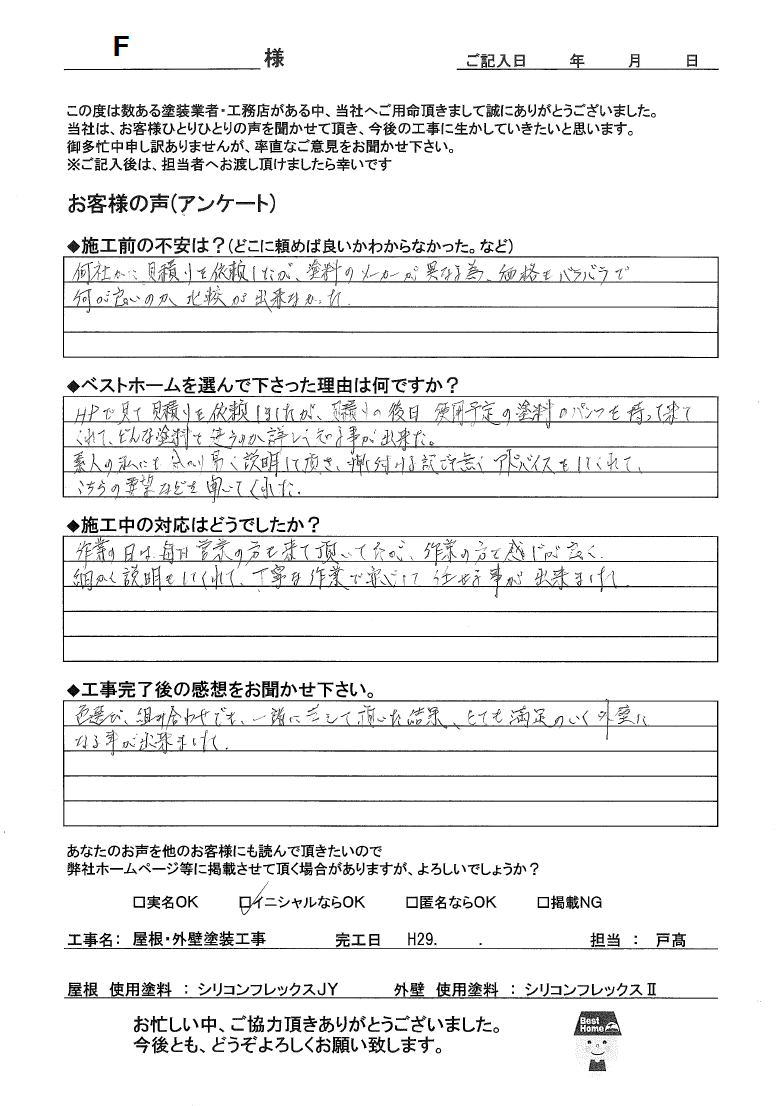 F 様 ご記入日 年 月 日
この度は数ある塗装業者・工務店がある中、当社へご用命頂きまして誠にありがとうございました。
当社は、お客様ひとりひとりの声を聞かせて頂き、今後の工事に生かしていきたいと思います。
御多忙中申し訳ありませんが、率直なご意見をお聞かせ下さい。
※ご記入後は、担当者へお渡し頂けましたら幸いです
お客様の声(アンケート)
◆施工前の不安は?(どこに頼めば良いかわからなかった。など)
何社かに見積りを依頼したが、塗料のメーカーが異なる為、価格もバラバラで
何が良いのか比較が出来なかった.
◆ベストホームを選んで下さった理由は何ですか?
HPで見て見積りを依頼しましたが、見積りの後日使用予定の塗料のパンフを持って来て
くれて、どんな塗料を使うのか詳しく知る事が出来た。
素人の私にも分かり易く説明して頂き、押付ける訳でも無くアドバイスをしてくれて、
こちらの要望などを聞いてくれた.
◆施工中の対応はどうでしたか?
作業の日は毎日営業の方も来て頂いてたが、作業の方も感じが良く.
細かく説明をしてくれて、丁寧な作業で安心して任せる事が出来ました.
◆工事完了後の感想をお聞かせ下さい。
色選び、組み合わせでも、一緒に して頂いた結果、とても満足のいく外壁に
なる事が出来ました.
あなたのお声を他のお客様にも読んで頂きたいので
弊社ホームページ等に掲載させて頂く場合がありますが、よろしいでしょうか?
□実名OK □イニシャルならOK □匿名ならOK □掲載NG
工事名: 屋根・外壁塗装工事 完工日 H29. . 担当 : 戸髙
屋根 使用塗料 : シリコンフレックスJY 外壁 使用塗料 : シリコンフレックスⅡ
お忙しい中、ご協力頂きありがとうございました。
今後とも、どうぞよろしくお願い致します。
Best
Home